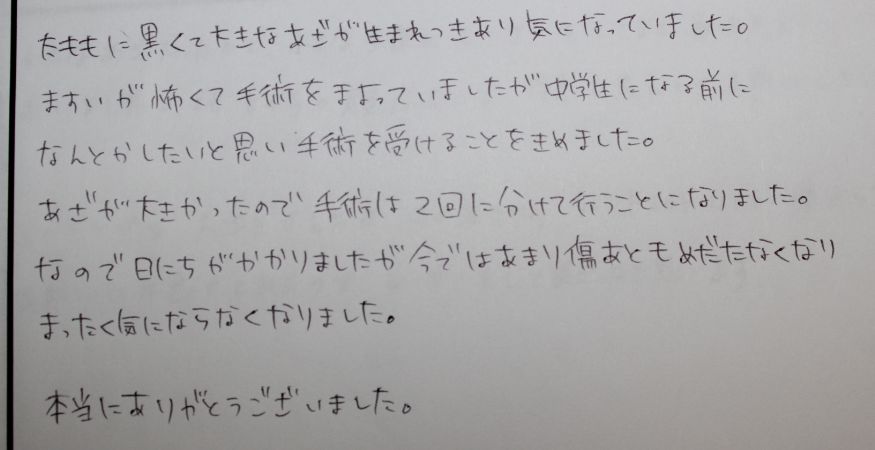 太ももに黒くて大きなあざが生まれつきあり気になっていました。
ますいが怖くて手術をまよっていましたが中学生になる前に
なんとかしたいと思い手術を受けることをきめました。
あざが大きかったので手術は2回に分けて行うことになりました。
なので日にちがかかりましたが今ではあまり傷あともめだたなくなり
まったく気にならなくなりました。
本当にありがとうございました。